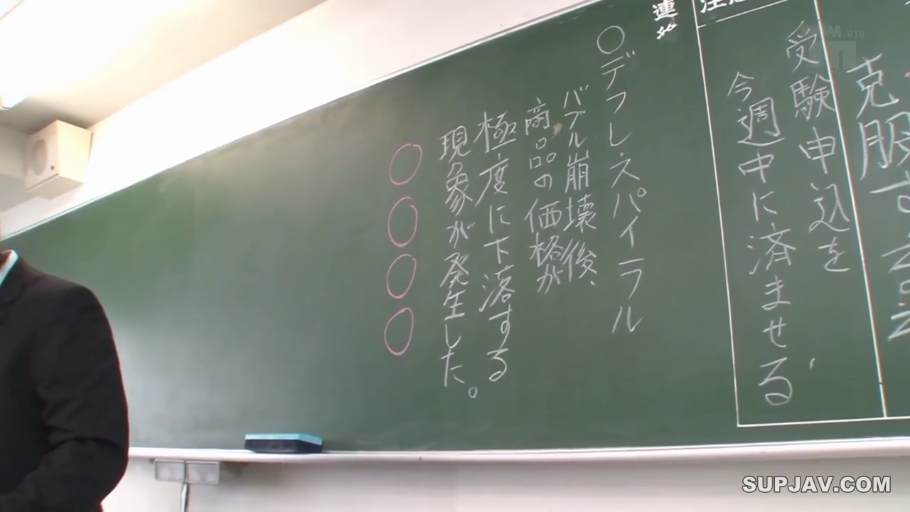 受験申込を
今週中に済ませる
○デフレ・スパイラル
バブル崩壊後、
商品の価格が
極度に下落する
現象が発生した。
○○○○
SUPJAV.COM